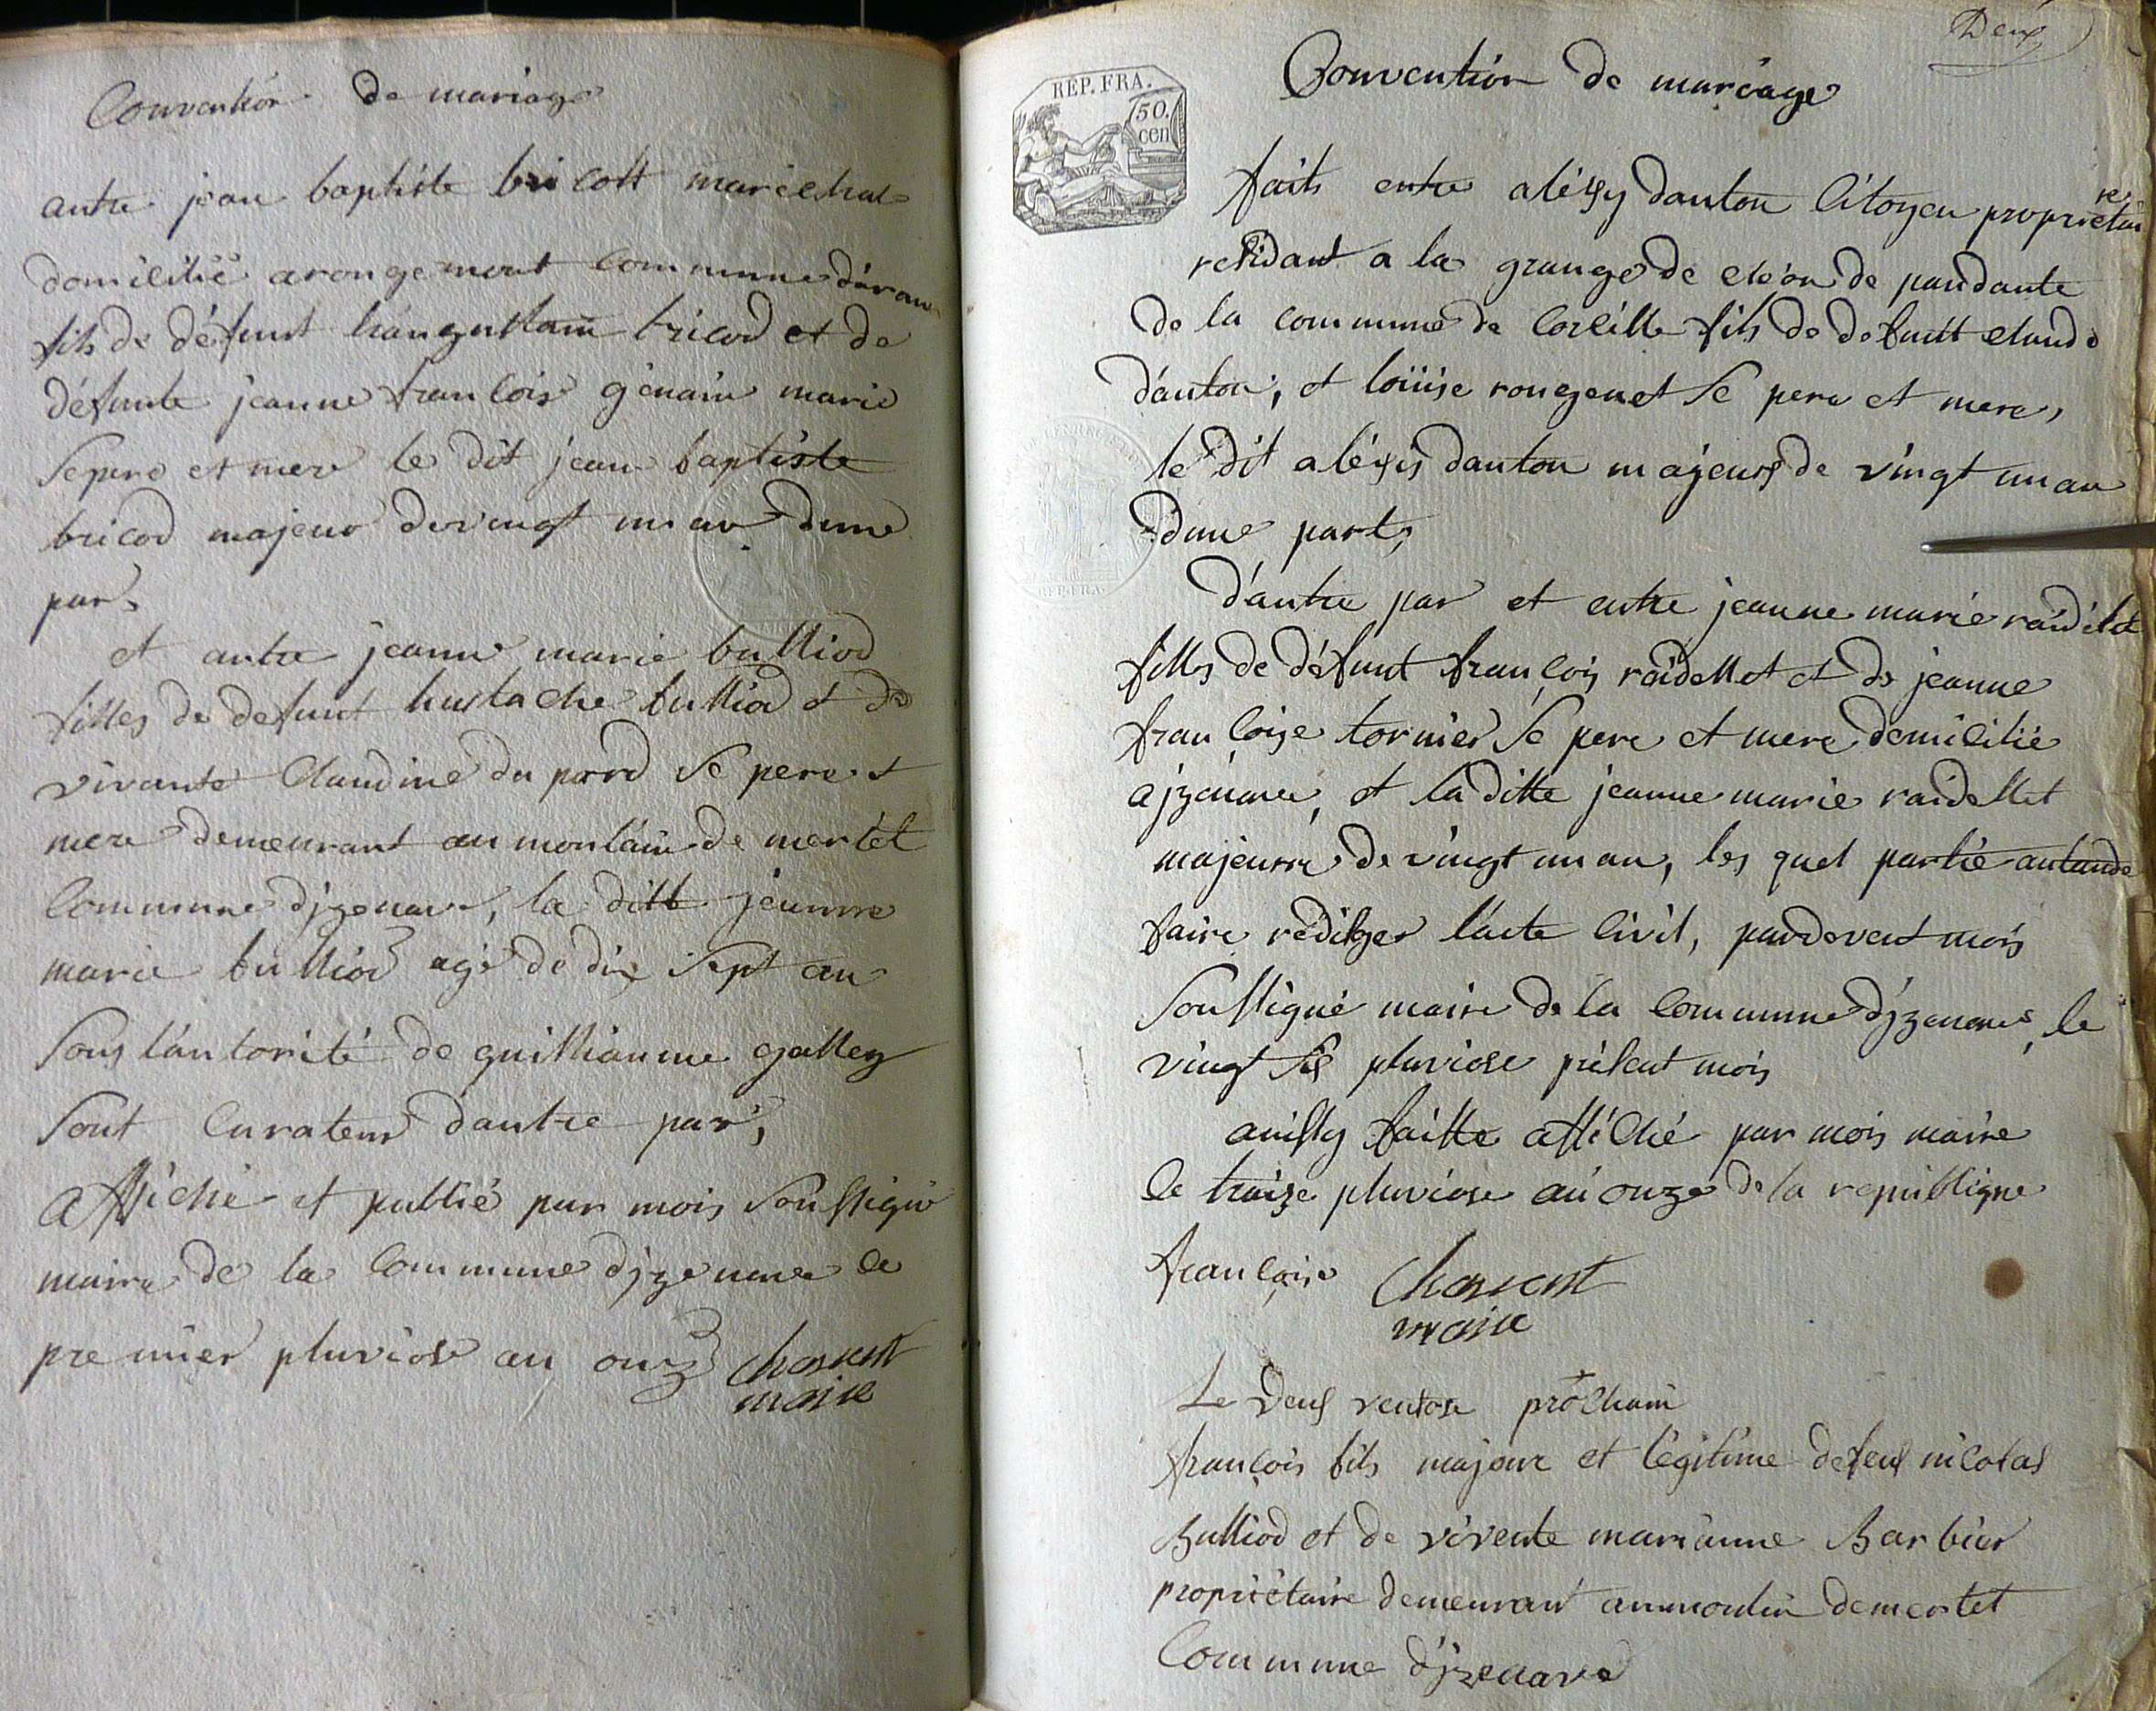 Convention de mariage
antre jean baptiste bricott marechal
domicilié a rongemont commune d'aran
fils de défunt bricod et de
défunte jeanne francois génain marie
se pere et mere le dit jean baptiste
bricod majeur de vingt un an dune
par,
et antre jeanne marie bulliod
filles de defunt hustache bulliod et de
vivante Claudine du pord se pere et
mere demeurant au moulain de mertel
Commune d'jzenave, la ditt jeanne
marie bulliod agé de dix sept an
sous l'antorité de guilliaume galley
sont Curateur dantre par,
affiché et publié par mois soussigné
maire de la Commune d'jzenave le
premier pluviose an onz Chanent
maire
Deux
REP. FRA.
50.
cen
Convention de mariage
faits entre aléxy danton Citoyen proprietaire
residant a la grange de cléon de pandante
de la commune de Corcelle fils de defuntt claude
d'anton, et loüise rougemet se pere et mere,
le dit aléxis danton majeurs de vingt un an
dune part,
d'antre par et entre jeanne marie raidelet
filles de défunt françois raidellet et de jeanne
françoise tornier se pere et mere domicilié
a jzenave, et la ditte jeanne marie raidellet
majeurre de vingt un an, les quel partié antande
faire rédilger l'acte Civil, pardevent mois
soussigné maire de la Commune d'jzenave, le
vingt six pluviose présent mois
ainssy faitte affiché par mois maire
le traize pluviose an onze de la republique
françoise Chanent
maire
Le deus ventose prochain
françois fils majeur et légitime de feus nicolas
Bulliod et de vivente marianne Barbier
propriétaire demeurant au moulin de mertel
Commune d'jzenave